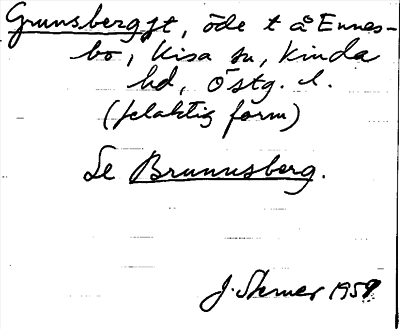 Grunsberg jt, öde t å Ennes-
bo, Kisa sn, Kinda
hd, Östg. l.
(felaktig form)
Se Brunnsberg.
J. Sterner 1959